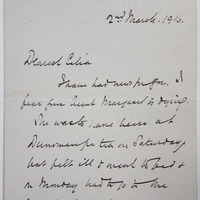 2nd March. 1916.
Dearest Celia
I have had news from. I
fear poor Aunt Margaret is dying.
She was to have been at
on Saturday,
but felt ill & went to bed &
on Monday had to go to the